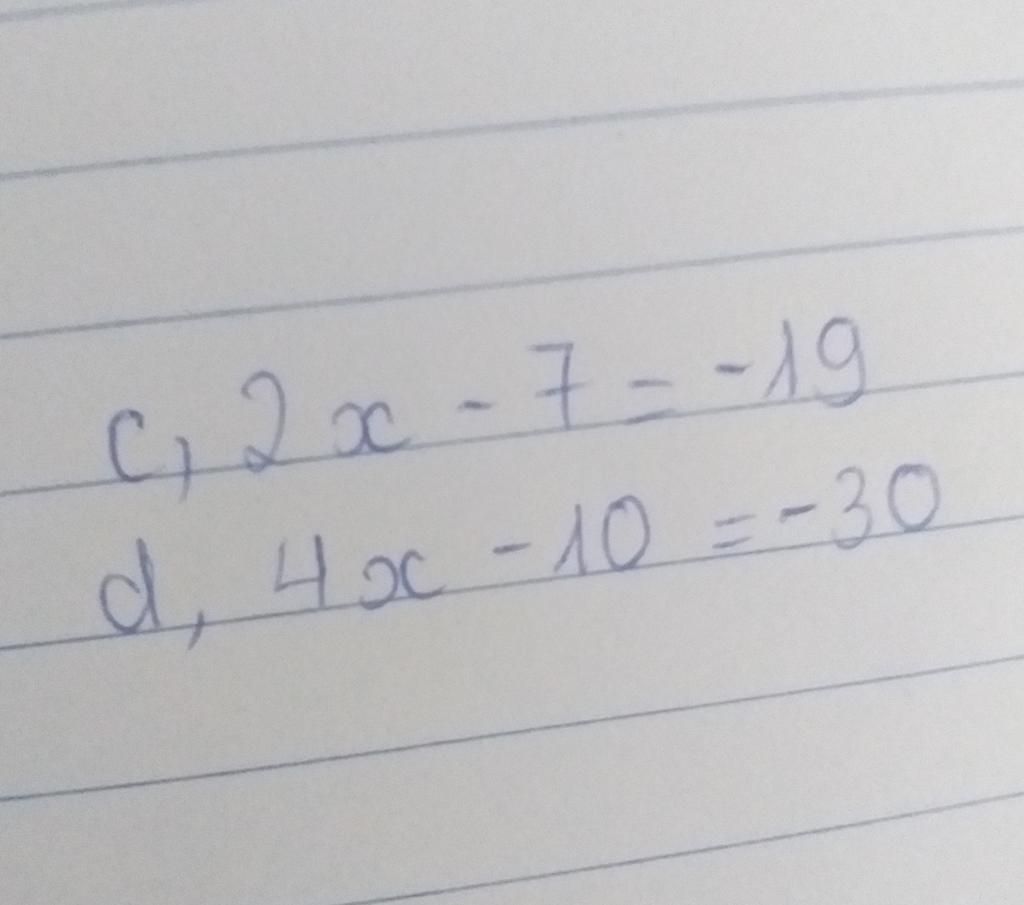 c, 2x - 7 = -19
d, 4x - 10 = -30